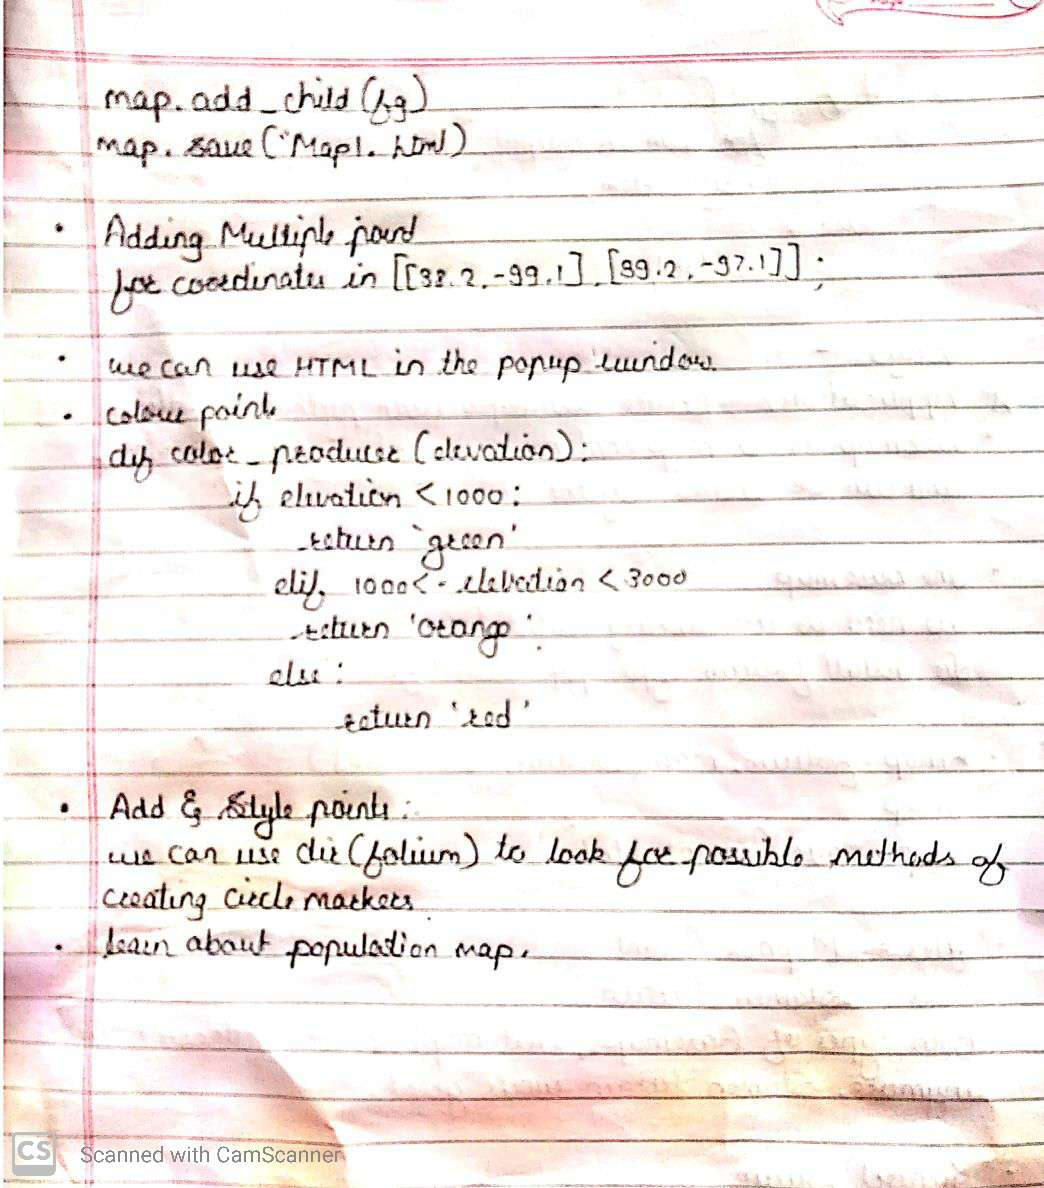 map.add_child(fg)
map.save("Map1.html)
• Adding Multiple point
for coordinates in [[38.2,-99.1],[39.2,-97.1]]:
• we can use HTML in the popup window.
• colour points
def color_producer(elevation):
if elevation < 1000:
return 'green'
elif 1000 <- elevation < 3000
return 'orange'
else:
return 'red'
• Add & Style points:
we can use dir(folium) to look for possible methods of
creating circle markers
• learn about population map.
CS Scanned with CamScanner